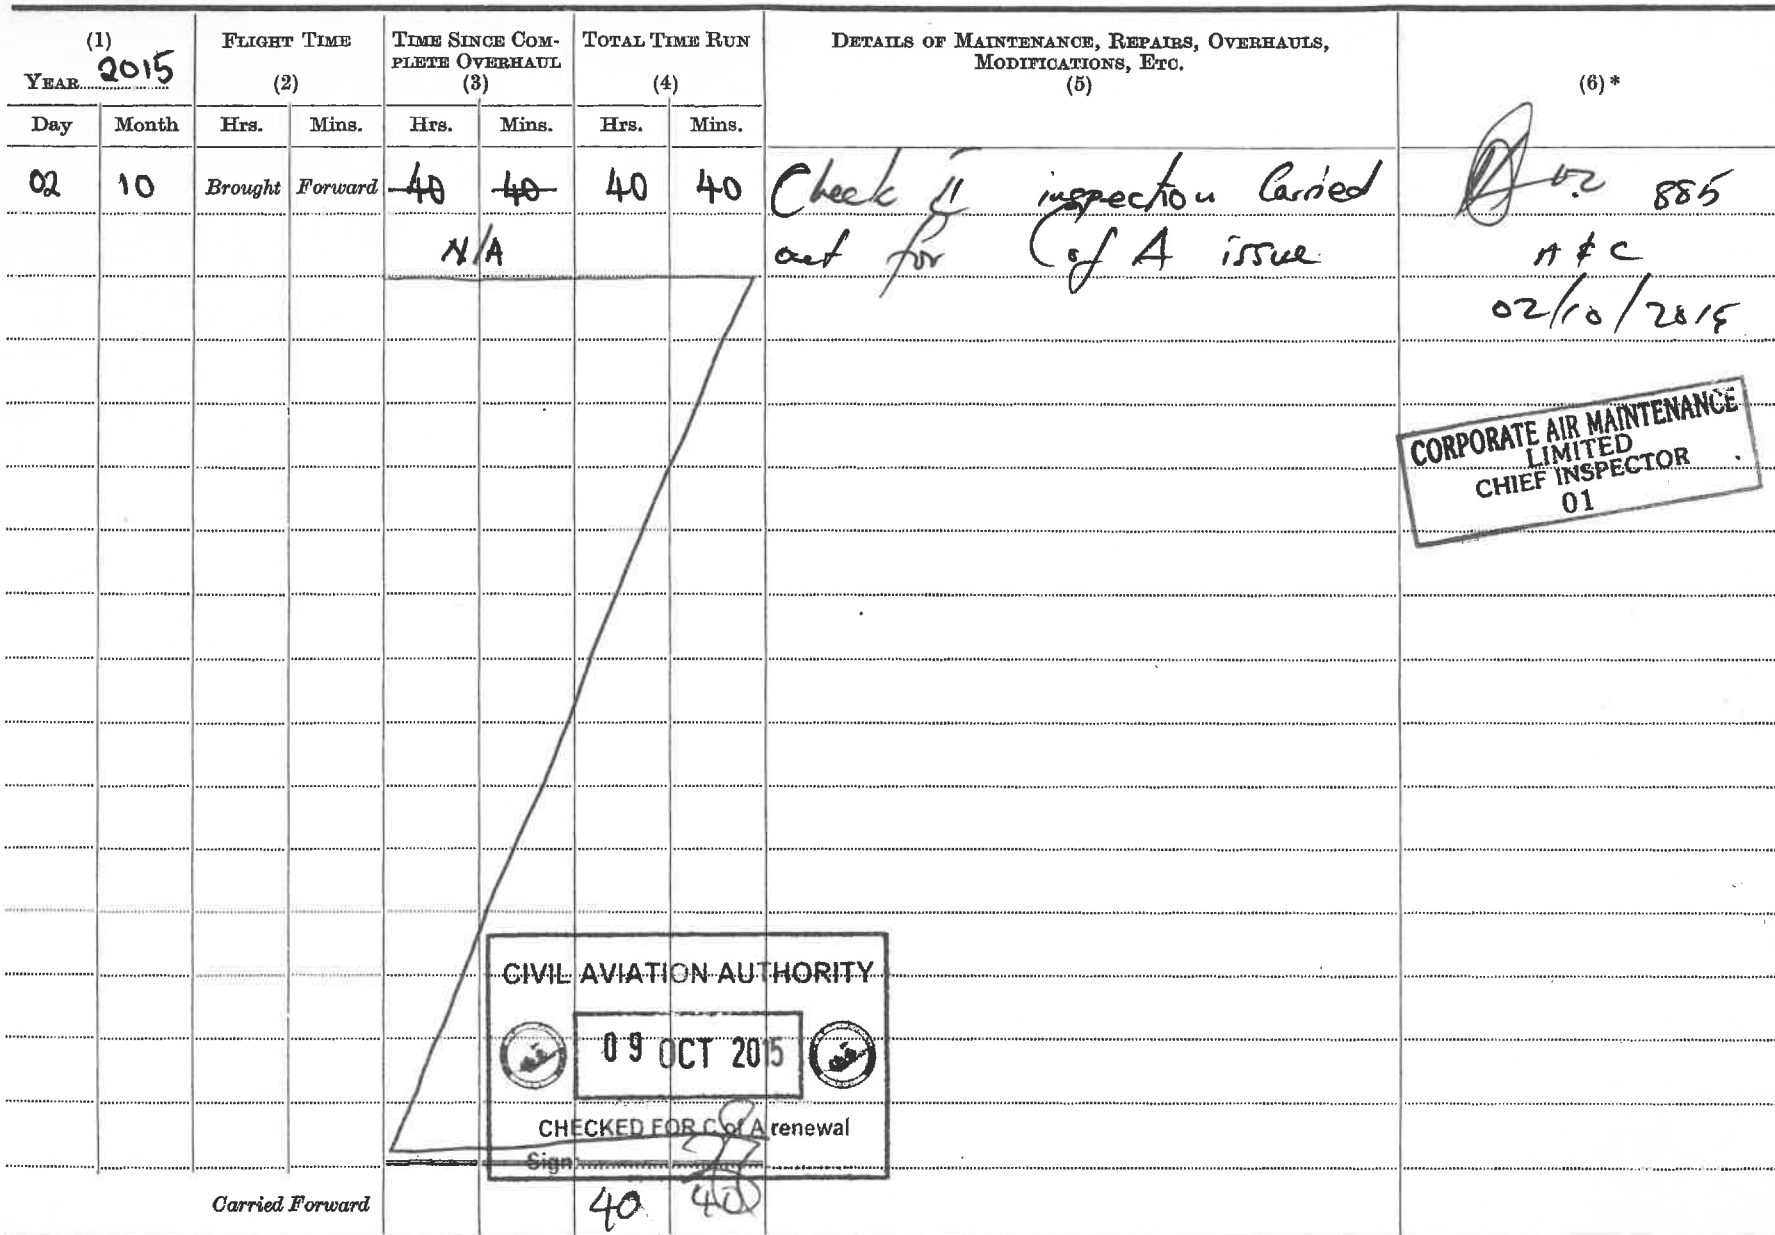 (1)
YEAR 2015
FLIGHT TIME
(2)
TIME SINCE COM-
PLETE OVERHAUL
(3)
TOTAL TIME RUN
(4)
DETAILS OF MAINTENANCE, REPAIRS, OVERHAULS,
MODIFICATIONS, ETC.
(5)
(6) *
Day Month Hrs. Mins. Hrs. Mins. Hrs. Mins.
02 10 Brought Forward 40 40 40 40 Check II inspection Carried 885
N/A out for C of A issue A & C
02/10/2015
CORPORATE AIR MAINTENANCE
LIMITED
CHIEF INSPECTOR
01
CIVIL AVIATION AUTHORITY
09 OCT 2015
CHECKED FOR C of A renewal
Sign
Carried Forward 40 40